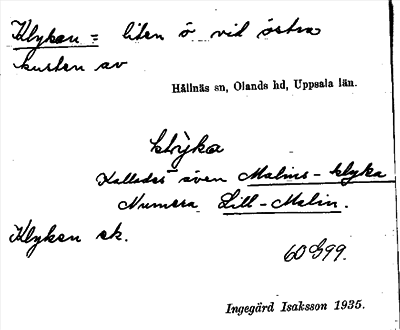 Klykan = liten ö vid östra
kusten av
Hållnäs sn, Olands hd, Uppsala län.
klỳka
Kallades även Malins-klyka
Numera Lill-Malin.
Klykan ek.
60 G 99.
Ingegärd Isaksson 1935.